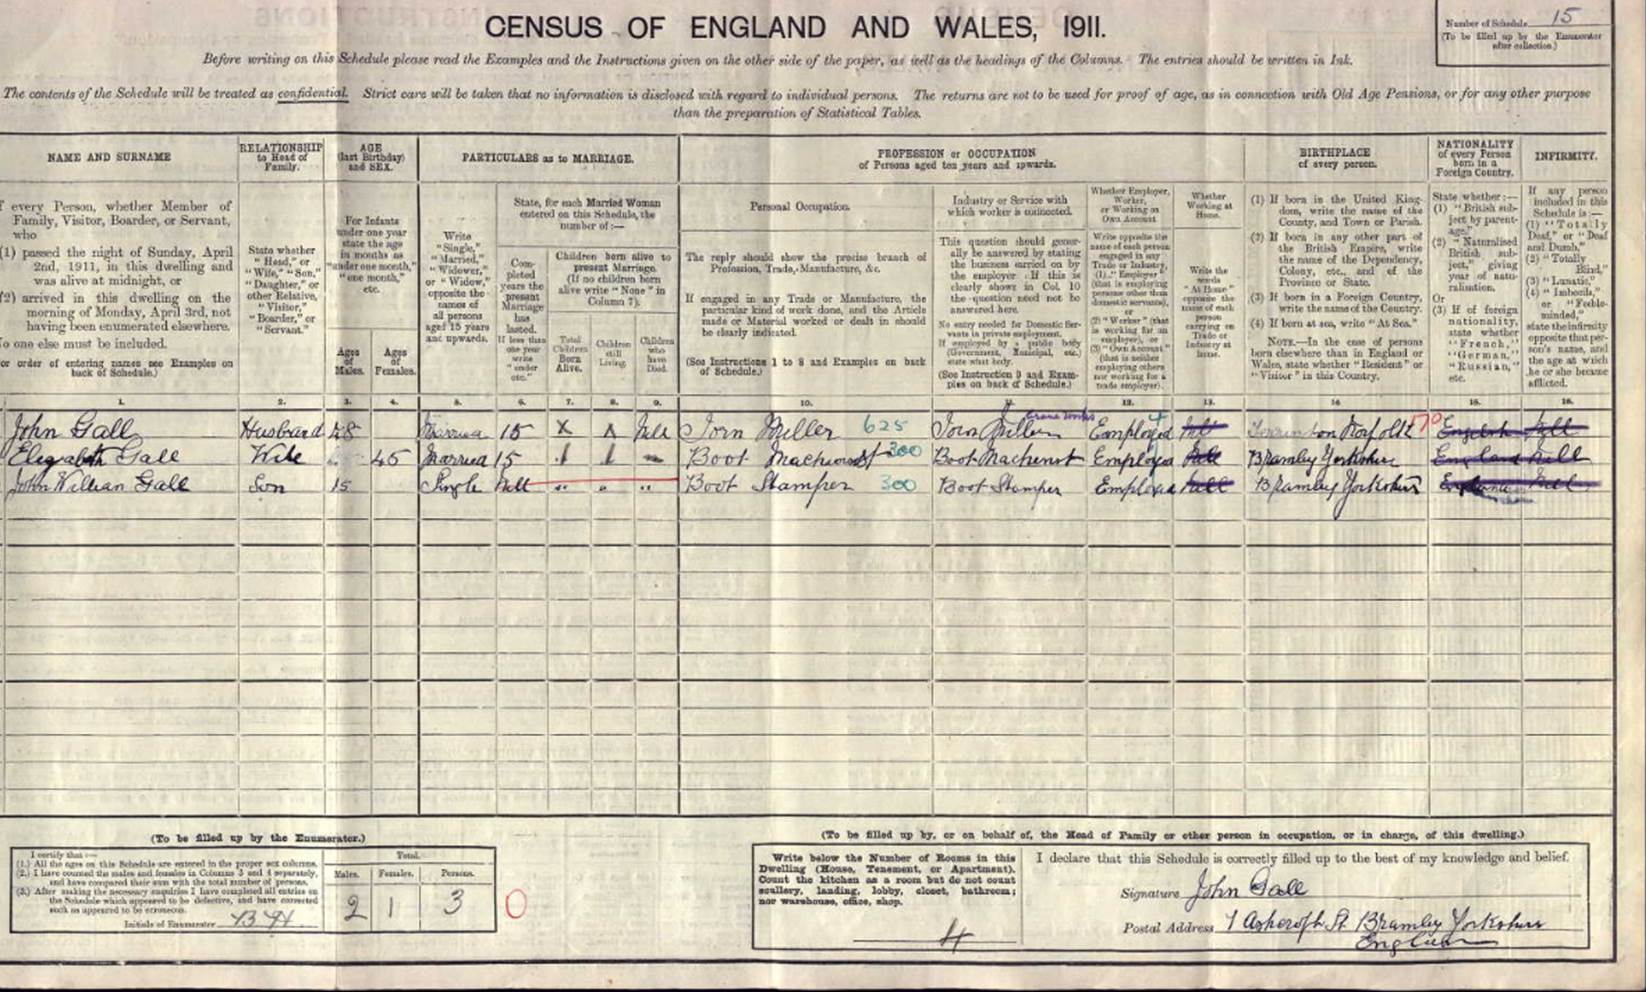 CENSUS OF ENGLAND AND WALES, 1911.
Number of Schedule 15
(To be filled up by the Enumerator
after collection.)
Before writing on this Schedule please read the Examples and the Instructions given on the other side of the paper, as well as the headings of the Columns. The entries should be written in Ink.
The contents of the Schedule will be treated as confidential. Strict care will be taken that no information is disclosed with regard to individual persons. The returns are not to be used for proof of age, as in connection with Old Age Pensions, or for any other purpose
than the preparation of Statistical Tables.
NAME AND SURNAME
RELATIONSHIP
to Head of
Family.
AGE
(last Birthday)
and SEX.
PARTICULARS as to MARRIAGE.
PROFESSION or OCCUPATION
of Persons aged ten years and upwards.
BIRTHPLACE
of every person.
NATIONALITY
of every Person
born in a
Foreign Country.
INFIRMITY.
every Person, whether Member of
Family, Visitor, Boarder, or Servant,
who
(1) passed the night of Sunday, April
2nd, 1911, in this dwelling and
was alive at midnight, or
(2) arrived in this dwelling on the
morning of Monday, April 3rd, not
having been enumerated elsewhere.
No one else must be included.
or order of entering names see Examples on
back of Schedule.)
State whether
"Head," or
"Wife," "Son,"
"Daughter," or
other Relative,
"Visitor,"
"Boarder," or
"Servant."
For Infants
under one year
state the age
in months as
"under one month,"
"one month,"
etc.
Ages
of
Males.
Ages
of
Females.
Write
"Single,"
"Married,"
"Widower,"
or "Widow,"
opposite the
names of
all persons
aged 15 years
and upwards.
State, for each Married Woman
entered on this Schedule, the
number of:—
Completed
years the
present
Marriage
has
lasted.
If less than
one year
write
"under
one."
Children born alive to
present Marriage.
(If no children born
alive write "None" in
Column 7).
Total
Children
Born
Alive.
Children
still
Living.
Children
who
have
Died.
Personal Occupation.
The reply should show the precise branch of
Profession, Trade, Manufacture, &c.
If engaged in any Trade or Manufacture, the
particular kind of work done, and the Article
made or Material worked or dealt in should
be clearly indicated.
(See Instructions 1 to 8 and Examples on back
of Schedule.)
Industry or Service with
which worker is connected.
This question should generally
be answered by stating
the business carried on by
the employer. If this is
clearly shown in Col. 10
the question need not be
answered here.
No entry needed for Domestic Servants
in private employment.
If employed by a public body
(Government, Municipal, etc.)
state what body.
(See Instruction 9 and Examples
on back of Schedule.)
Whether Employer,
Worker,
or Working on
Own Account.
Write opposite the
name of each person
engaged in any
Trade or Industry,
(1) "Employer"
(that is employing
persons other than
domestic servants),
or
(2) "Worker" (that
is working for an
employer), or
(3) "Own Account"
(that is neither
employing others
nor working for a
trade employer).
Whether
Working at
Home.
Write the
words
"At Home"
opposite the
name of each
person
carrying on
Trade or
Industry at
home.
(1) If born in the United Kingdom,
write the name of the
County, and Town or Parish.
(2) If born in any other part of
the British Empire, write
the name of the Dependency,
Colony, etc., and of the
Province or State.
(3) If born in a Foreign Country,
write the name of the Country.
(4) If born at sea, write "At Sea."
NOTE.—In the case of persons
born elsewhere than in England or
Wales, state whether "Resident" or
"Visitor" in this Country.
State whether:—
(1) "British subject
by parentage."
(2) "Naturalised
British subject,"
giving
year of naturalisation.
Or
(3) If of foreign
nationality,
state whether
"French,"
"German,"
"Russian,"
etc.
If any person
included in this
Schedule is:—
(1) "Totally
Deaf," or "Deaf
and Dumb,"
(2) "Totally
Blind,"
(3) "Lunatic,"
(4) "Imbecile,"
or "Feeble-minded,"
state the infirmity
opposite that person's
name, and
the age at which
he or she became
afflicted.
1. 2. 3. 4. 5. 6. 7. 8. 9. 10. 11. 12. 13. 14. 15. 16.
John Gall Husband 48 Married 15 X Iorn Miller 625 Employed Norfolk 170
Elezabeth Gall Wife 45 Married 15 1 1 Boot Machinest 300 Boot Machenist Employed Bramley Yorkshire England
John William Gall Son 15 Single Boot Stamper 300 Boot Stamper Employed Bramley Yorkshire
(To be filled up by the Enumerator.)
I certify that:—
(1.) All the ages on this Schedule are entered in the proper sex columns.
(2.) I have counted the males and females in Columns 3 and 4 separately,
and have compared their sum with the total number of persons.
(3.) After making the necessary enquiries I have completed all entries on
the Schedule which appeared to be defective, and have corrected
such as appeared to be erroneous.
Initials of Enumerator
Total.
Males. Females. Persons.
2 1 3
0
(To be filled up by, or on behalf of, the Head of Family or other person in occupation, or in charge, of this dwelling.)
Write below the Number of Rooms in this
Dwelling (House, Tenement, or Apartment).
Count the kitchen as a room but do not count
scullery, landing, lobby, closet, bathroom;
nor warehouse, office, shop.
4
I declare that this Schedule is correctly filled up to the best of my knowledge and belief.
Signature John Gall
Postal Address 7 St Bramley Yorkshire
England